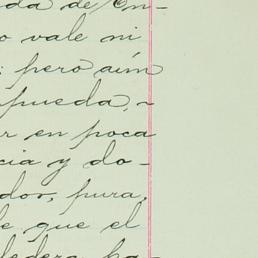 da de En-
o vale ni
: pero aún
pueda, ~
r en poca
cia y do-
dor, pura,
e que el
ledero, pa-